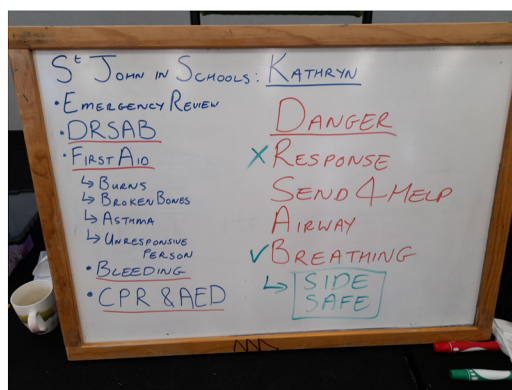 St JOHN IN SCHOOLS: KATHRYN
• EMERGENCY REVIEW
• DRSAB
• FIRST AID
↳ BURNS
↳ BROKEN BONES
↳ ASTHMA
↳ UNRESPONSIVE
PERSON
• BLEEDING
• CPR & AED
DANGER
X RESPONSE
SEND 4 HELP
AIRWAY
✓ BREATHING
↳ SIDE
SAFE